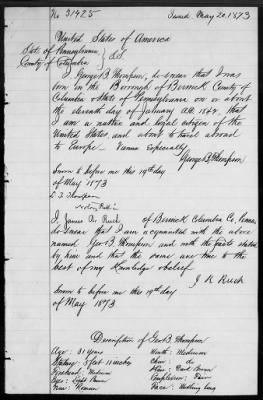 No 31425 Issued May 20, 1873
United States of America
State of Pennsylvania } SS.
County of Columbia
I, George B. Thompson, do swear that I was
born in the Borough of Berwick County of
Columbia & State of Pennsylvania on or about
the eleventh day of January A.D. 1842, that
I am a native and loyal citizen of the
United States, and about to travel abroad
to Europe Vienna Especially
George B. Thompson
Sworn to before me this 19th day
of May 1873
I, James A. Ruch, of Berwick Columbia Co, Penna,
do swear that I am acquainted with the above
named Geo B. Thompson and with the facts stated
by him and that the same are true to the
best of my Knowledge & belief
J. A. Ruch
Sworn to before me this 19th day
of May 1873
Description of Geo B. Thompson
Age: 31 years Mouth: Medium
Stature: 5 feet 11 inches Chin: do
Forehead: Medium Hair: Dark Brown
Eyes: Light Brown Complexion: Fair
Nose: Roman Face: